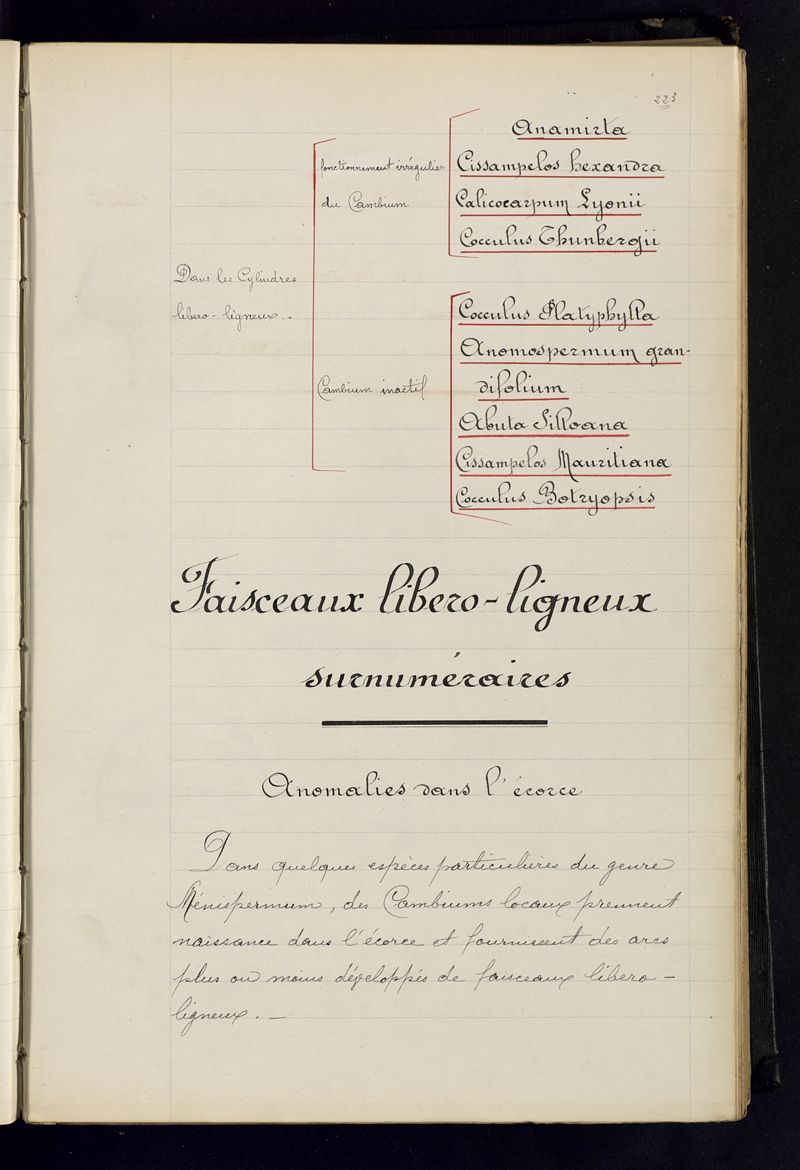 223
Anamirta
Cissampelos hexandra
Calicocarpum Lyonii
Cocculus Thunbergii
fonctionnement irrégulier
du Cambium
Dans les Cylindres
libero-ligneux.-
Cocculus Platyphylla
Anomospermum gran-
difolium
Abuta Selloana
Cissampelos Mauritiana
Cocculus Botryopsis
Cambium inactif
Faisceaux libero-ligneux
surnuméraires
Anomalies dans l'écorce
Dans quelques espèces particulières du genre
Ménispermum, des Cambiums locaux prennent
naissance dans l'écorce et fournissent des arcs
plus ou moins développés de faisceaux libero-
ligneux.-